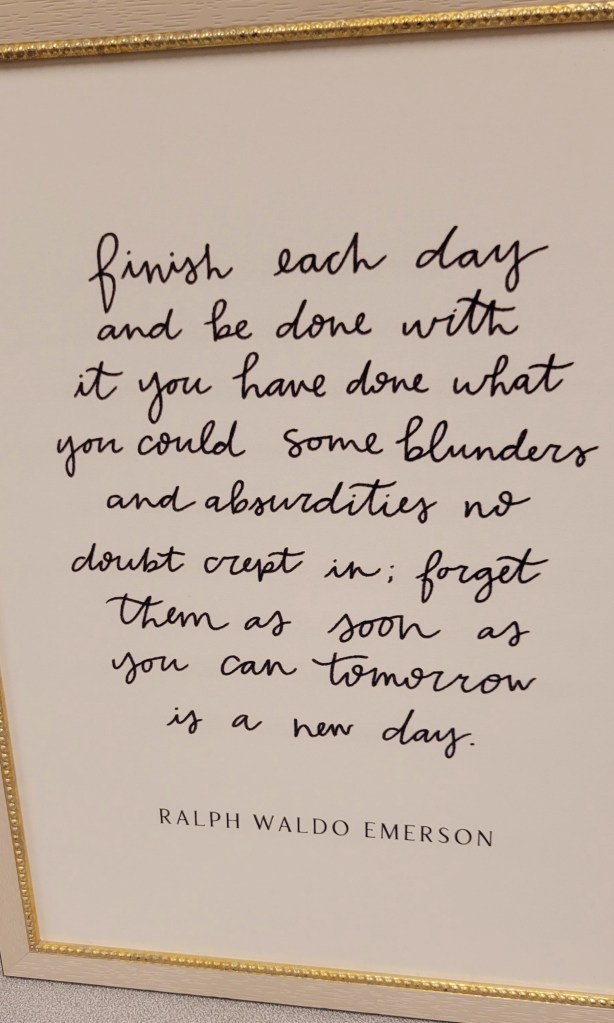 finish each day
and be done with
it you have done what
you could some blunders
and absurdities no
doubt crept in; forget
them as soon as
you can tomorrow
is a new day.
RALPH WALDO EMERSON